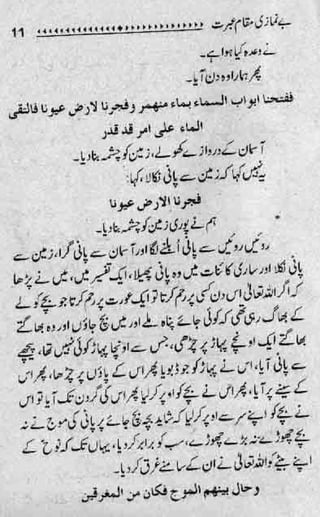 بے نمازی مقام عبرت 11
نے وعدہ کیا ہوا ہے۔
پھر ہمارا وہ دن آیا۔
ففتحنا ابواب السماء بماء منهمر وفجرنا لارض عيونا فالتقى
الماء على امر قد قدر
آسمان کے دروازے کھولے، زمین کو چشمہ بنا دیا۔
یہ نہیں کہا کہ زمین سے پانی نکالا، کہا:
فجرنا الارض عيونا
ہم نے پوری زمین کو چشمہ بنا دیا۔
روئیں روئیں سے پانی اُبلنے لگا اور آسمان سے پانی گرا، زمین سے
پانی نکلا اور ساری کائنات میں وہ پانی پھیلا، ایک تفسیر میں، میں نے پڑھا
کہ اگر اللہ تعالیٰ اس دن کسی پر رحم کرتا تو ایک عورت پر رحم کرتا جو بچے کو لے
کے بھاگ رہی تھی کہ کوئی جائے پناہ ملے اور میں بچ جاؤں اور وہ بھاگتے
بھاگتے ایک اونچے پہاڑ پر چڑھی، جس سے اونچا پہاڑ کوئی نہیں تھا، پیچھے
سے پانی آیا، اس نے پہاڑ کو ڈبویا پھر اس کے پاؤں پر چڑھا، پھر اس
کے سینے پر آیا، پھر اس نے بچے کو اوپر کر لیا پھر اس کی گردن تک آیا تو اس
نے بچے کو اپنے سر سے اوپر کر لیا کہ شاید بچہ بچ جائے پر پانی کی موج نے نہ
بچے چھوڑے نہ بڑے چھوڑے، سب کو برابر کر دیا، یہاں تک کہ نوح کے
اپنے بیٹے کو اللہ تعالیٰ نے ان کے سامنے غرق کر دیا۔
وحال بينهم الموج فكان من المغرقين